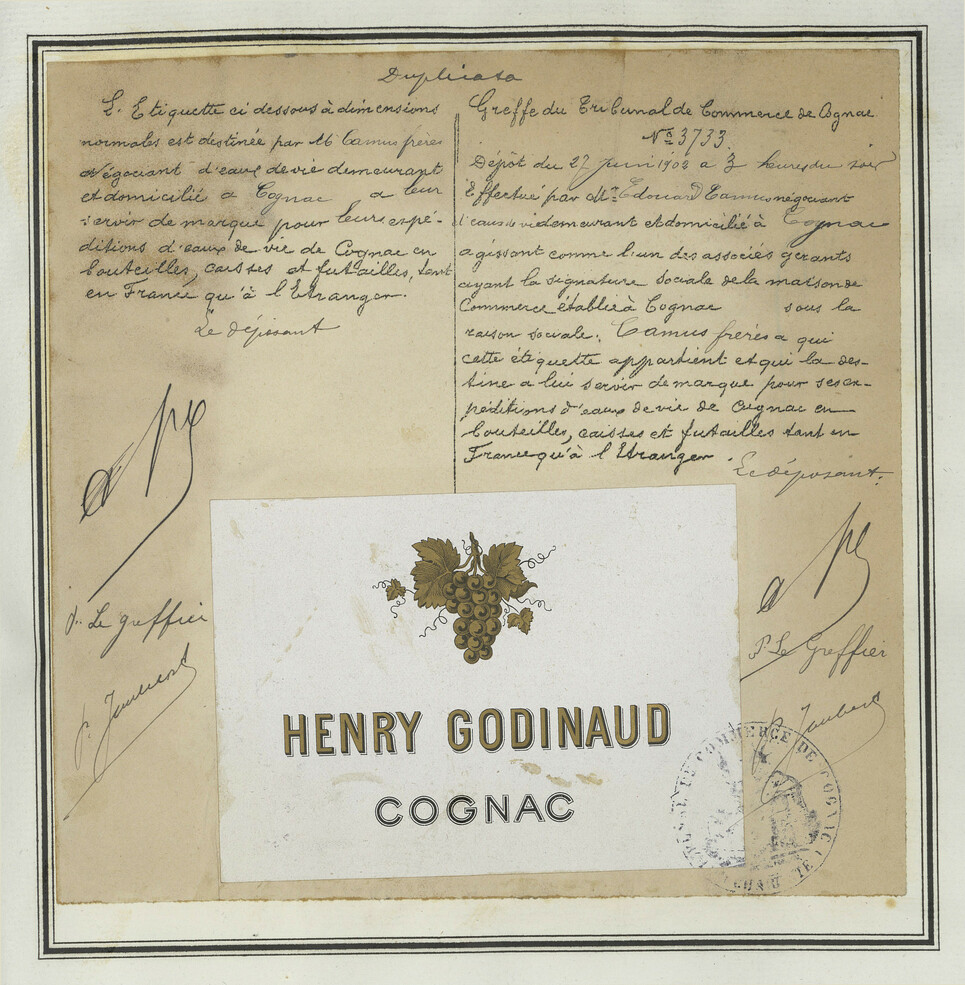 Duplicata
L'Etiquette ci dessous à dimensions
normales est destinée par M. Camus frères
Négociant d'eaux de vie demeurant
et domicilié à Cognac à leur
servir de marque pour leurs expé-
ditions d'eaux de vie de Cognac en
bouteilles, caisses et futailles, tant
en France qu'à l'Etranger.
Le déposant
Pr Le greffier
Greffe du Tribunal de Commerce de Cognac
No 3733
Dépôt du 27 juin 1902 à 3 heures du soir
Effectué par Mr Edouard Camus négociant
d'eaux de vie demeurant et domicilié à Cognac
agissant comme l'un des associés gérants
ayant la signature sociale de la maison de
Commerce établie à Cognac sous la
raison sociale. Camus frères à qui
cette étiquette appartient et qui la des-
tine à lui servir de marque pour ses ex-
péditions d'eaux de vie de Cognac en
bouteilles, caisses et futailles tant en
France qu'à l'Etranger.
Le déposant.
P. Le Greffier
P. Joubert
HENRY GODINAUD
COGNAC
TRIBUNAL DE COMMERCE DE COGNAC (CHARENTE)